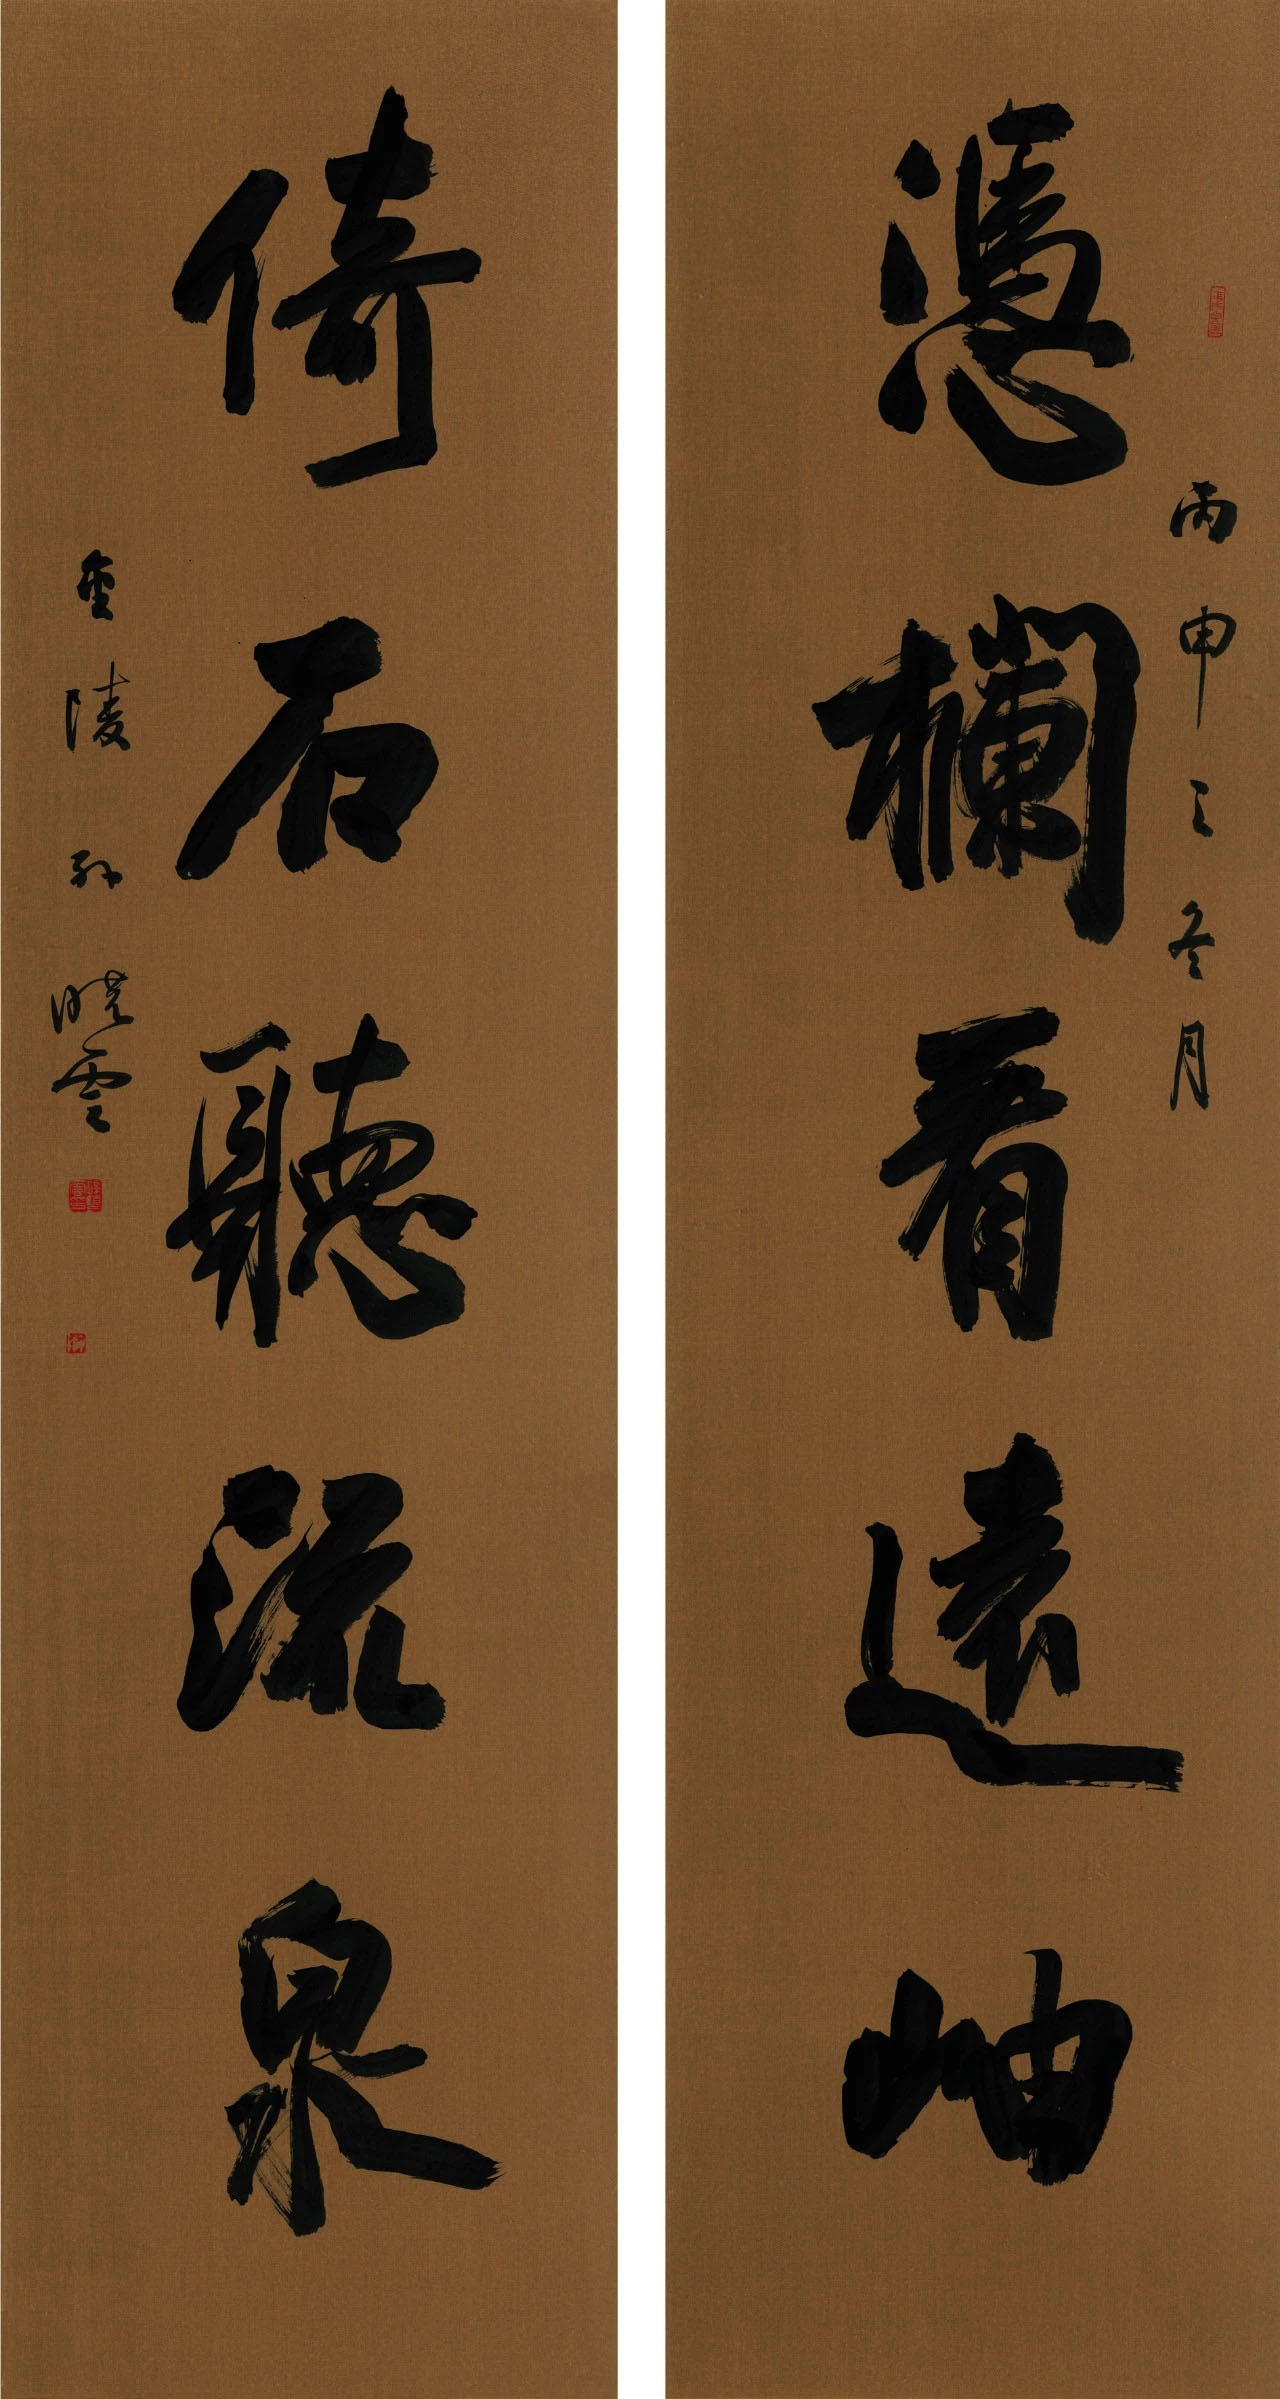 丙申之冬月
憑欄看遠岫
倚石聽流泉
金陵孫曉雲